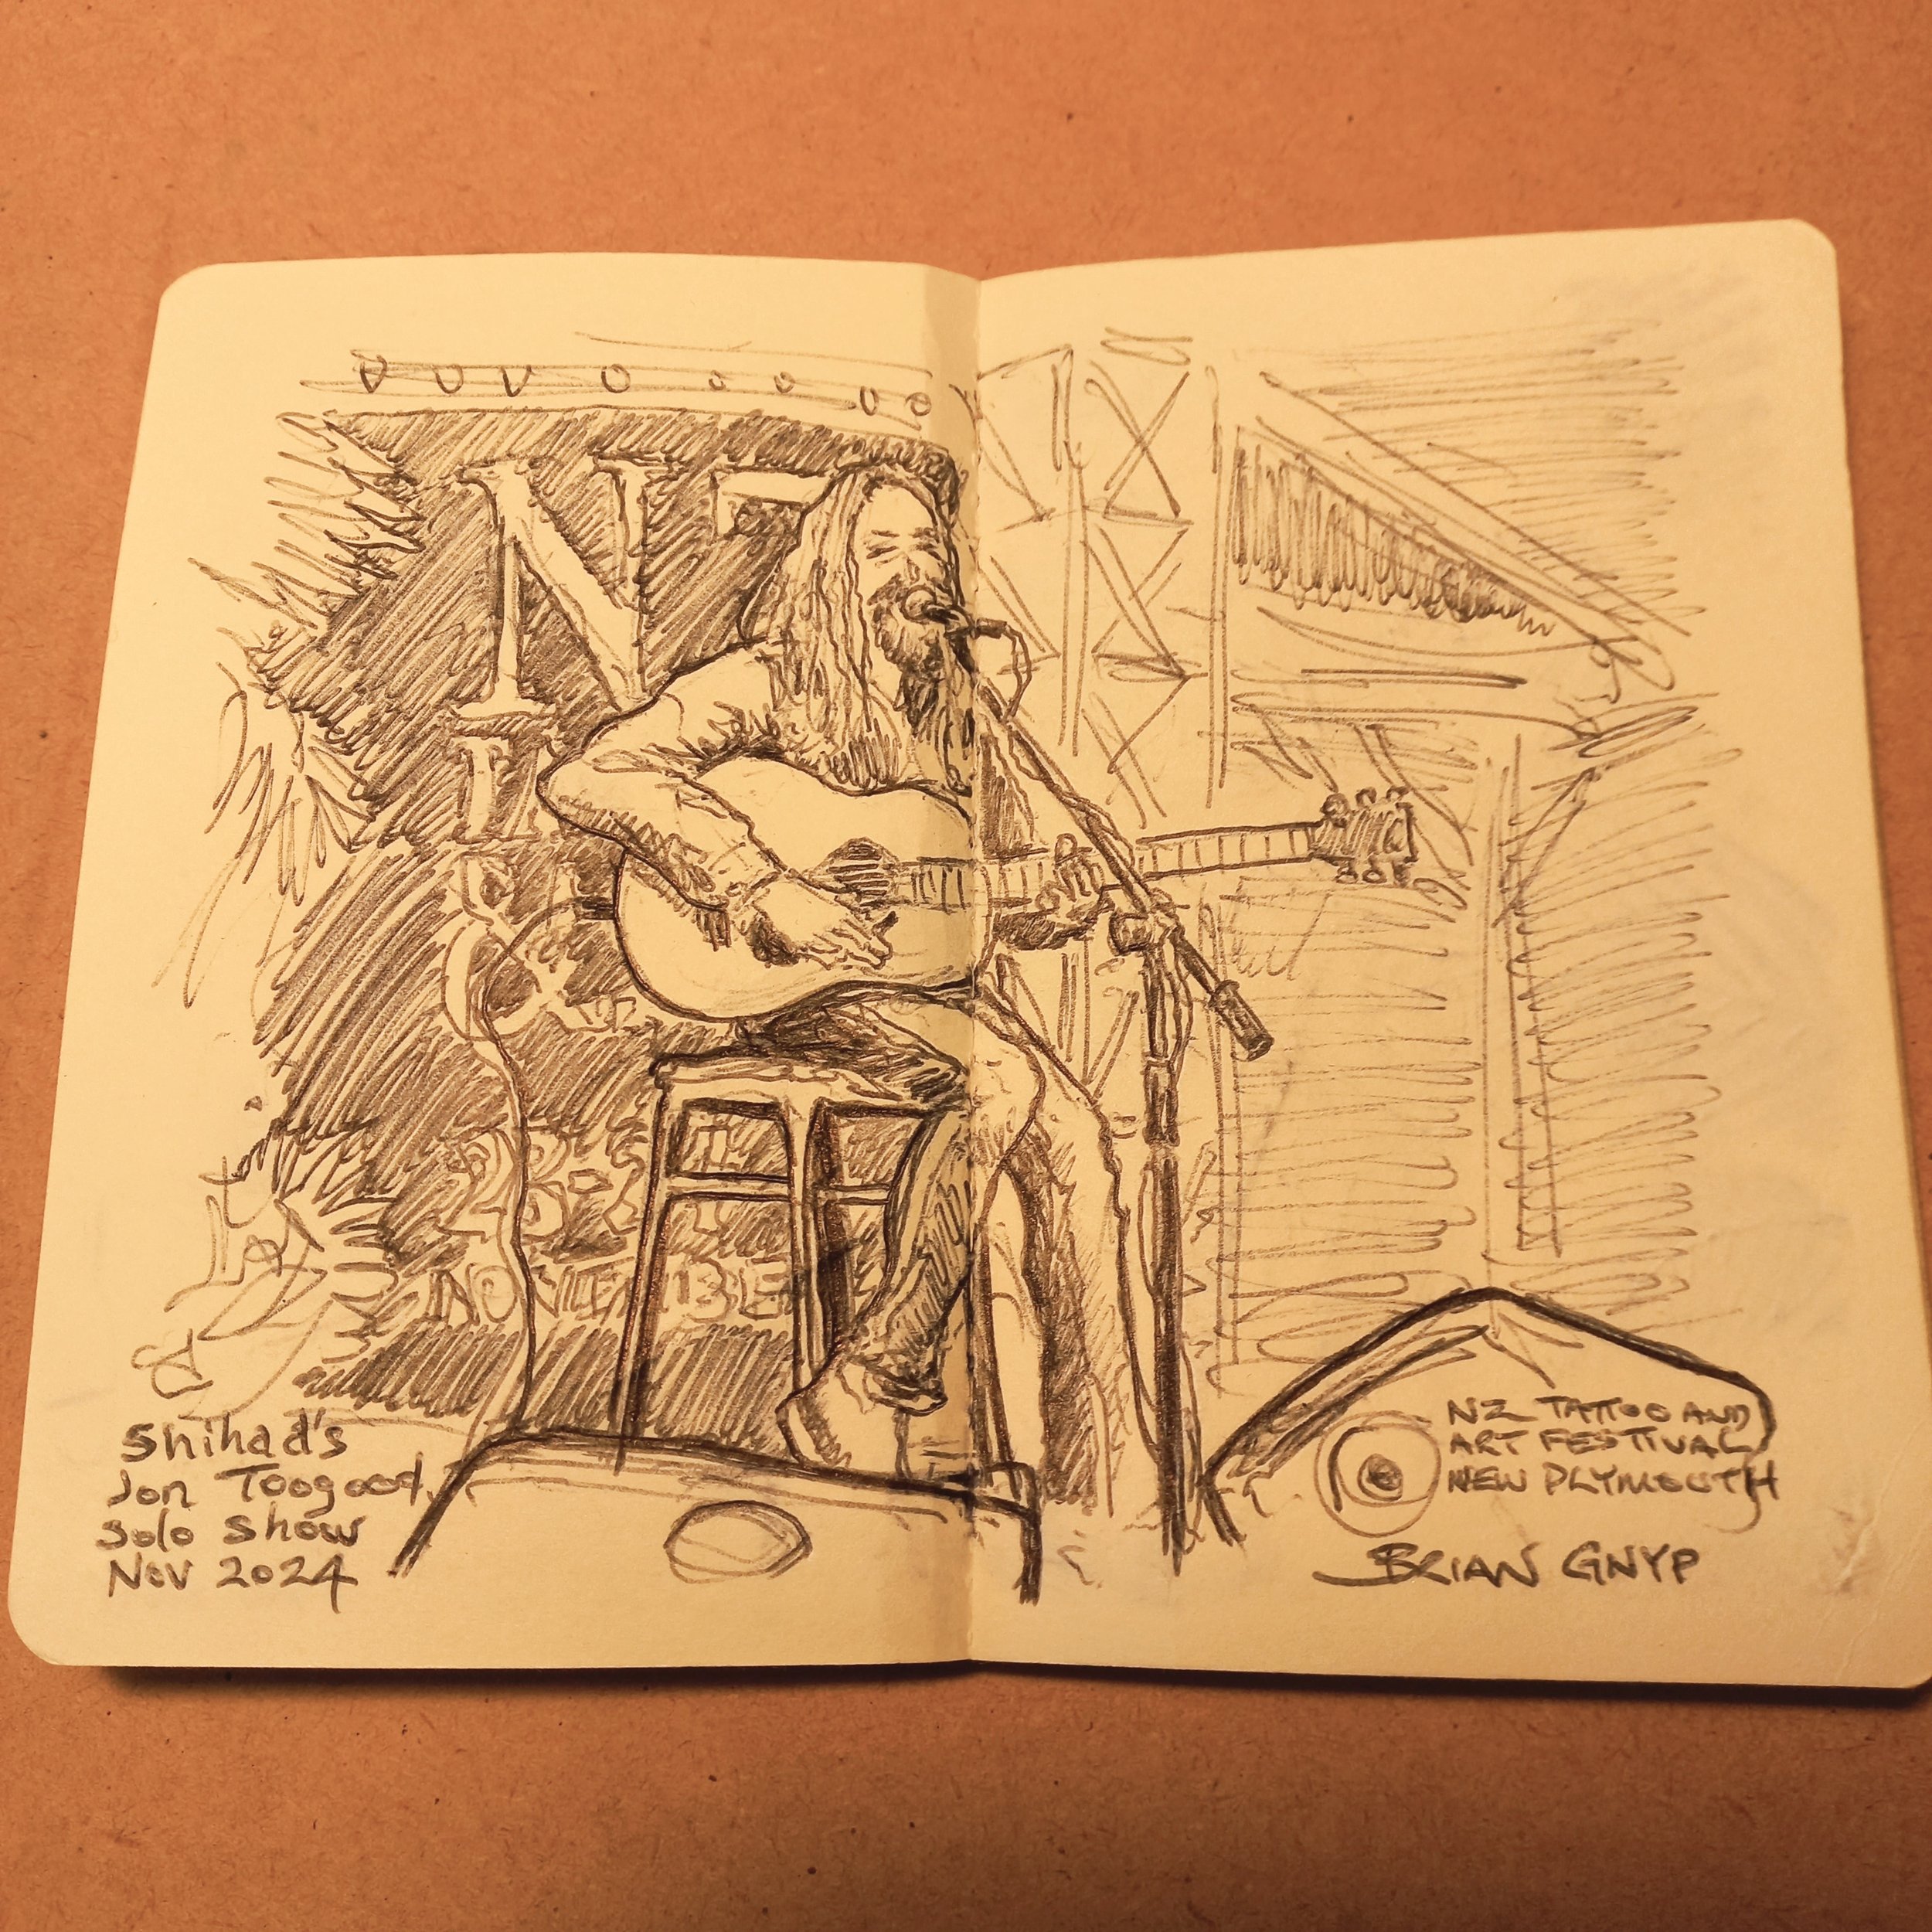 N
Shihad's
Jon Toogood
Solo Show
Nov 2024
NZ TATTOO AND
ART FESTIVAL
NEW PLYMOUTH
BRIAN GNYP